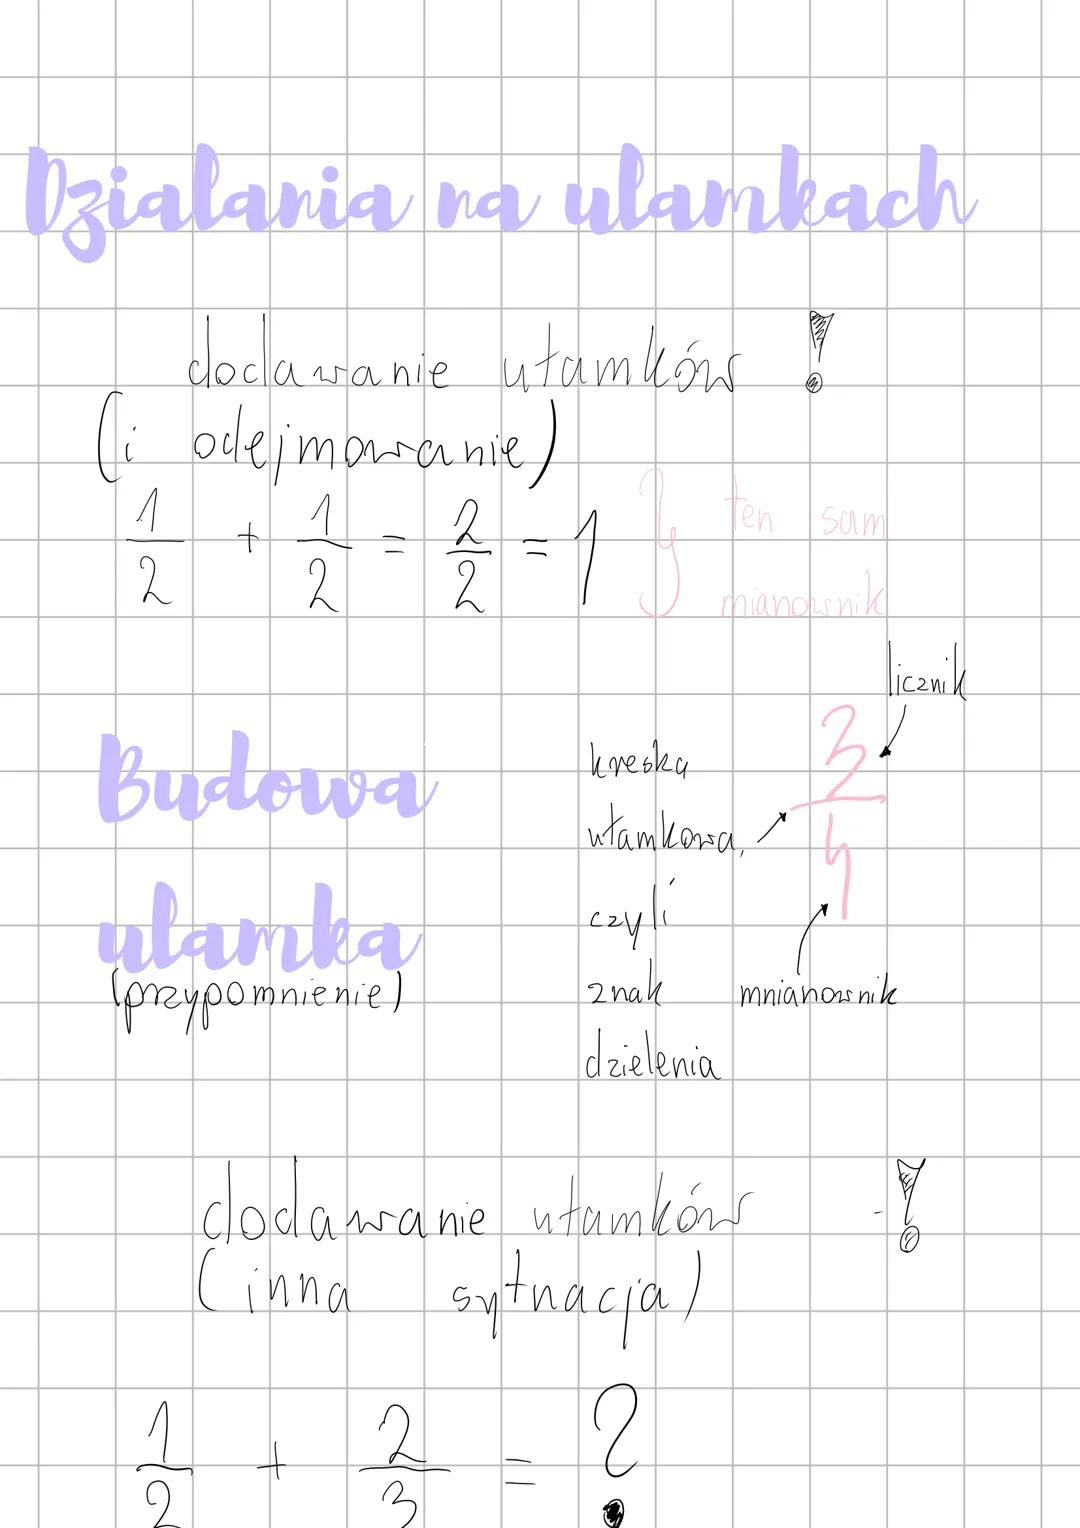 Dzialania na ulamkach
dodawanie ułamków !
(i odejmowanie)
1/2 + 1/2 = 2/2 = 1 } ten sam
mianownik
licznik
Budowa
ulamka
(przypomnienie)
kreska
ułamkowa,
czyli
znak
dzielenia
3/4
mnianownik
dodawanie ułamków - !
(inna sytuacja)
1/2 + 2/3 = ?